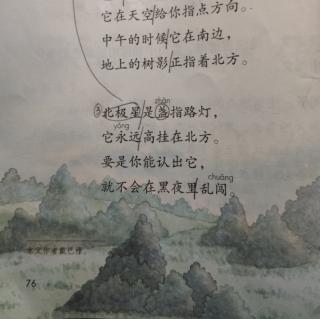 它在天空给你指点方向。
中午的时候它在南边，
地上的树影正指着北方。
zhǎn
③北极星是盏指路灯，
yǒng
它永远高挂在北方。
要是你能认出它，
chuǎng
就不会在黑夜里乱闯。
本文作者戴巴棣。
76